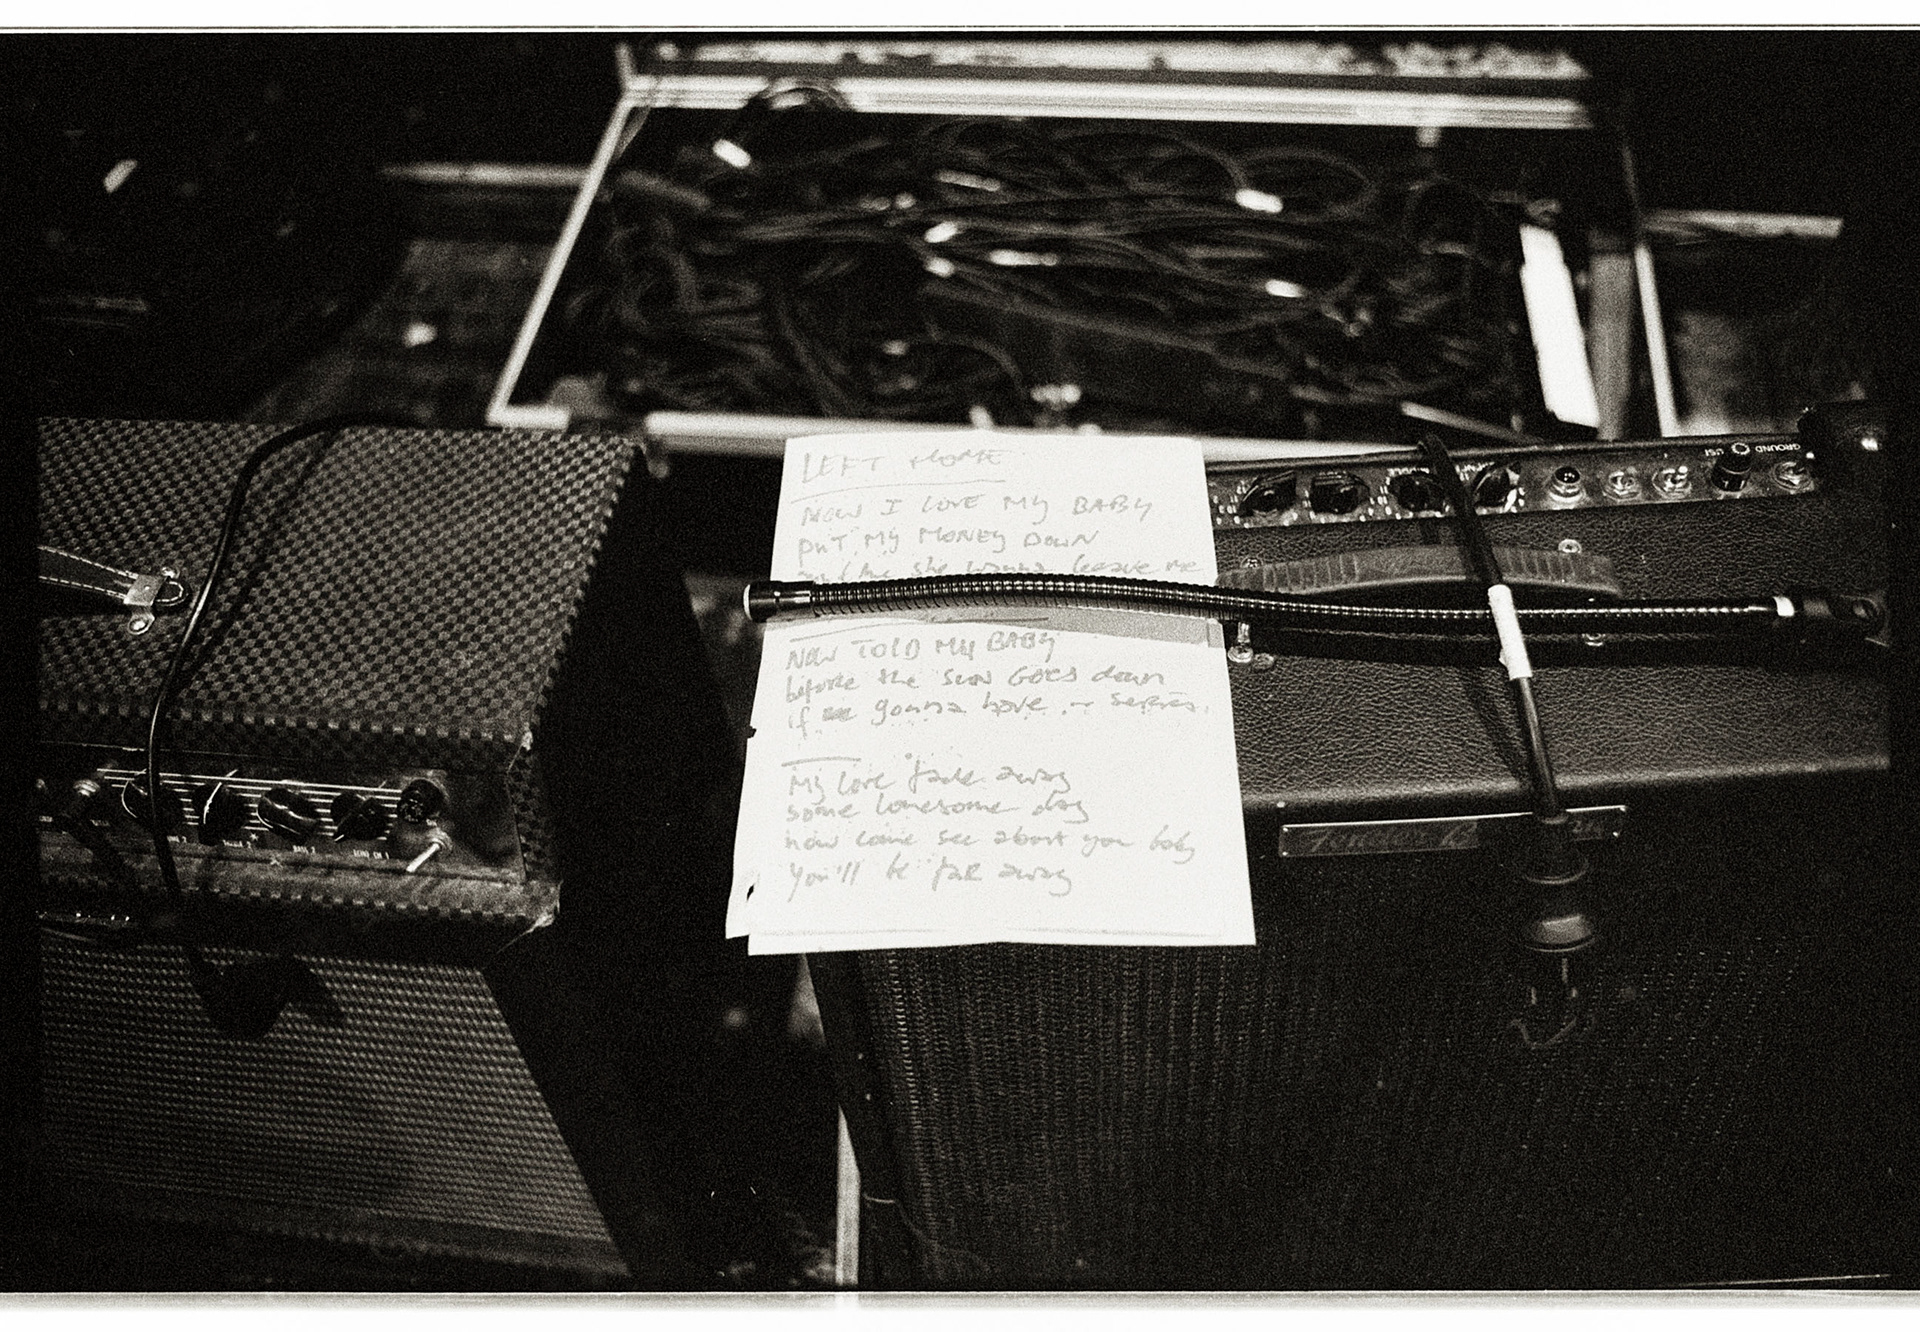 LEFT HOME
NOW I LOVE My BABY
PUT MY MONEY DOWN
she wanna leave me
NOW TOLD MY BABY
before the SUN GOES down
if gonna have
My love fade away
some lonesome day
now come see about you baby
you'll be faR away
GROUND
Fender